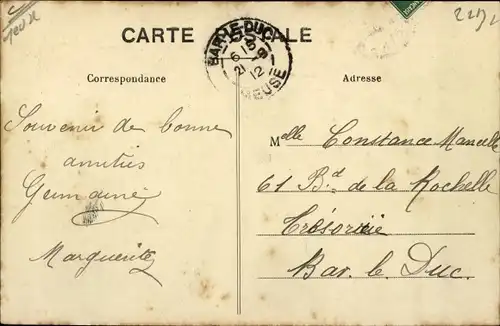 CARTE POSTALE
BAR-LE-DUC
21 - 9
12
MEUSE
Correspondance
Adresse
Souvenir de bonne
amitiés
Germaine
Marguerite
Melle Constance Mancelle
61 Bd de la Rochelle
Trésorerie
Bar. le Duc.